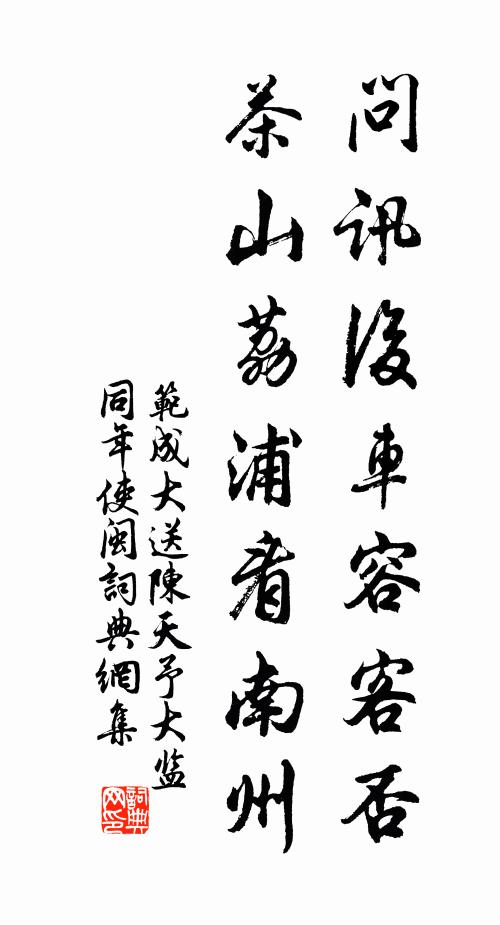 問訊後車容客否
茶山荔浦看南州
範成大送陳天予大监
同年使閩詞典網集
詞典
网印